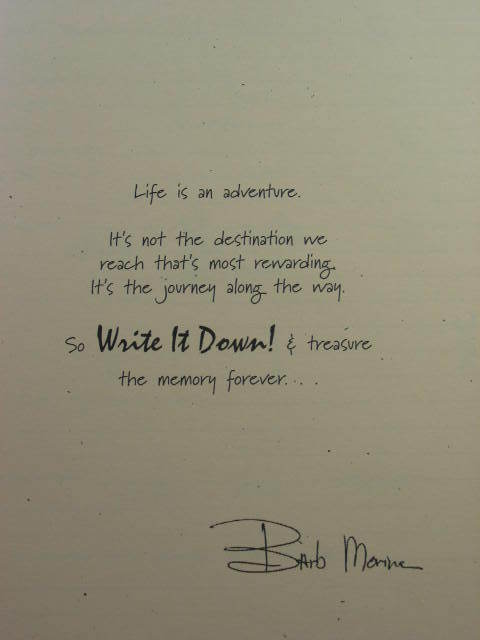 Life is an adventure.
It's not the destination we
reach that's most rewarding.
It's the journey along the way.
So Write It Down! & treasure
the memory forever. . .
Barb Morina